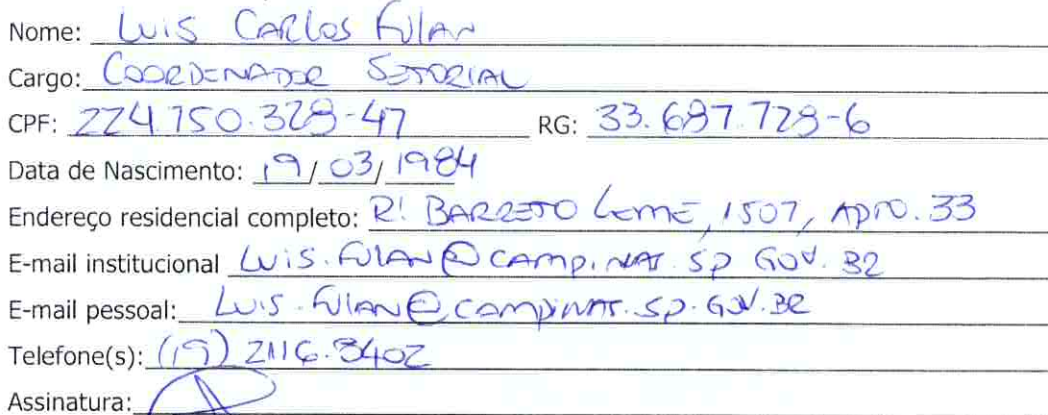 Nome: Luis Carlos Fulan
Cargo: Coordenador Setorial
CPF: 224.750.328-47 RG: 33.687.728-6
Data de Nascimento: 19/03/1984
Endereço residencial completo: R: Barreto Leme, 1507, apto. 33
E-mail institucional Luis.fulan@campinas.sp.gov.br
E-mail pessoal: Luis.fulan@campinas.sp.gov.br
Telefone(s): (19) 2116.8402
Assinatura: